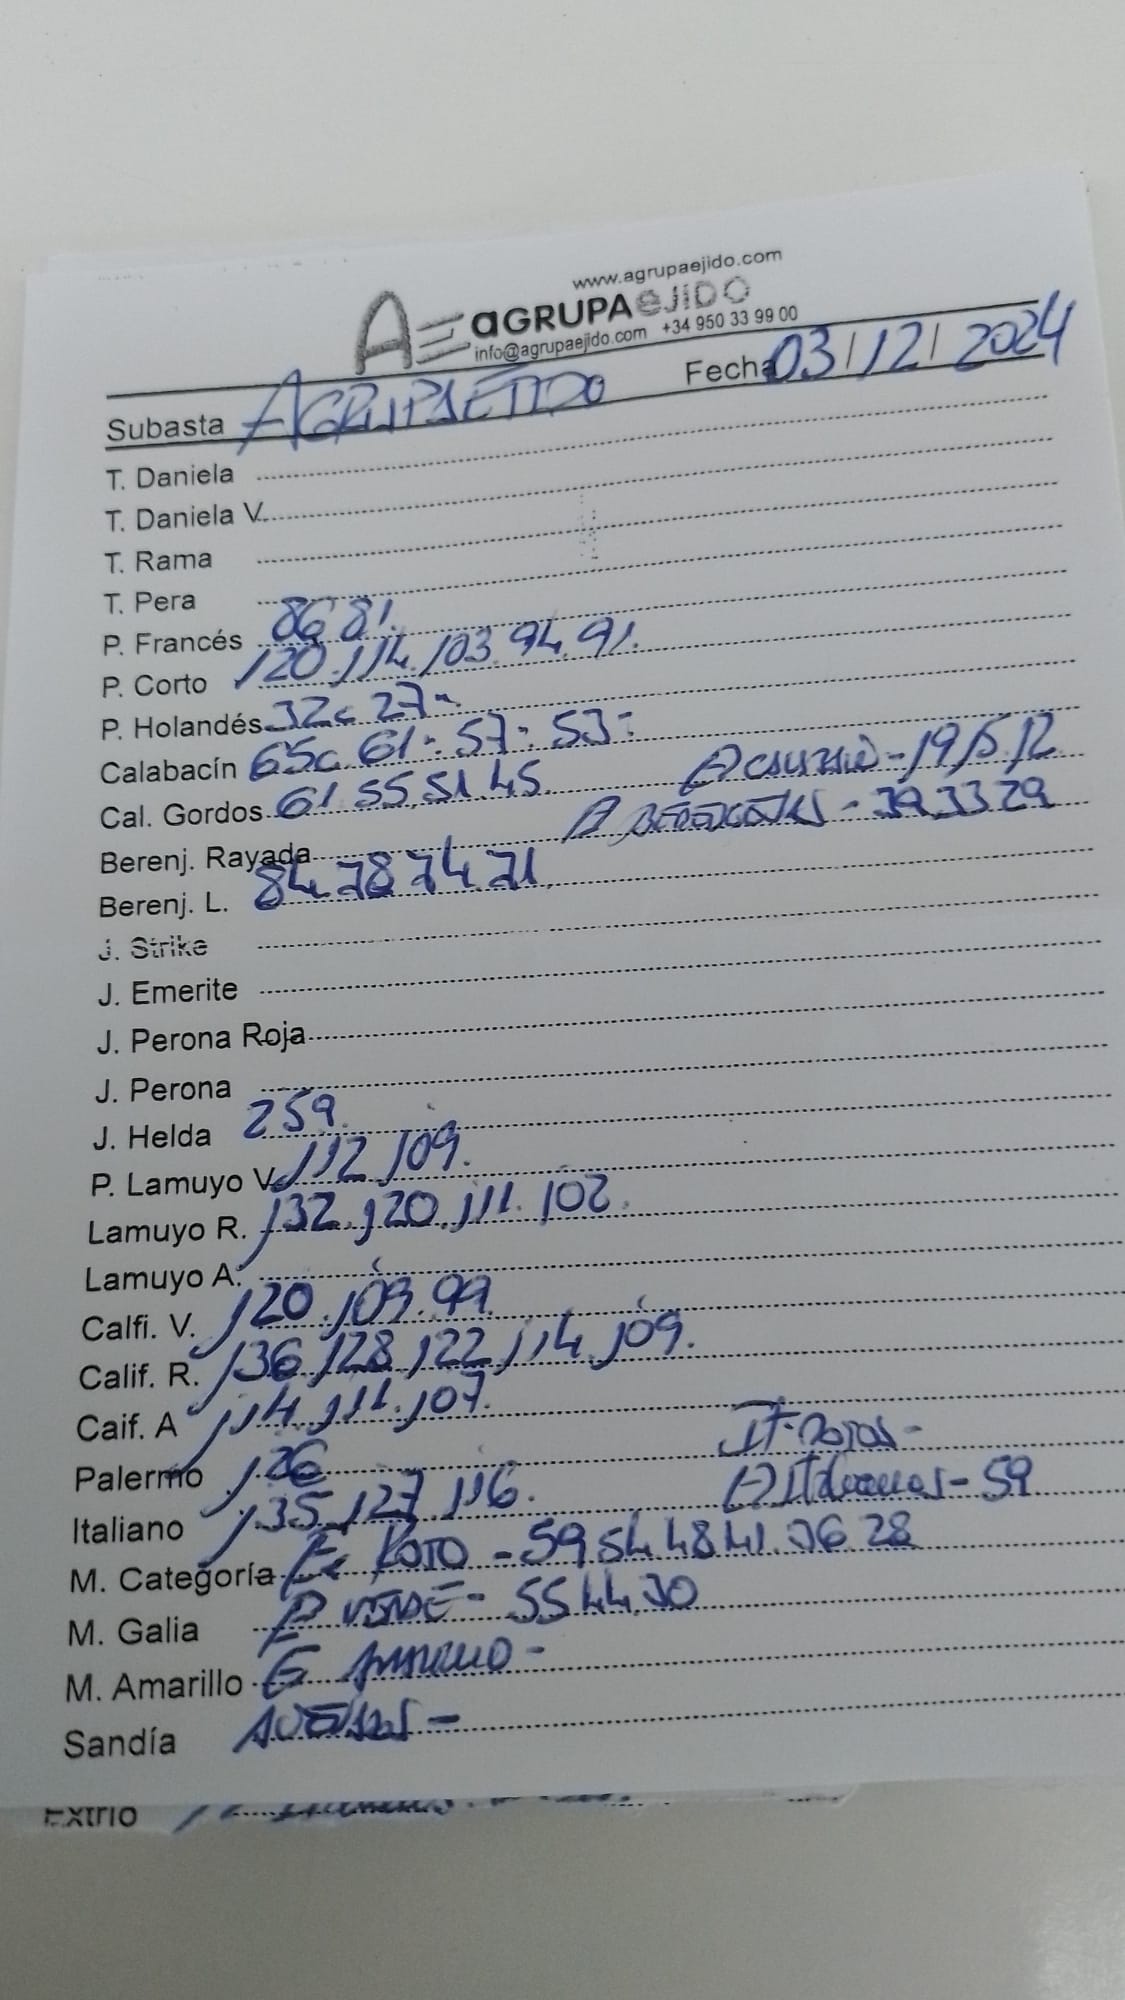 www.agrupaejido.com
AE aGRUPAeJIDO
info@agrupaejido.com +34 950 33 99 00
Subasta AGRUPAEJIDO Fecha 03/12/2024
T. Daniela
T. Daniela V.
T. Rama
T. Pera
P. Francés 86 81.
P. Corto 120.114.103.94.91.
P. Holandés 32 27
Calabacín 65 61 57 53
Cal. Gordos 61 55 51 45 - 19 15 12
Berenj. Rayada - 39 33 29
Berenj. L. 84 78 74 71
J. Strike
J. Emerite
J. Perona Roja
J. Perona
J. Helda 259.
P. Lamuyo V. 112 109.
Lamuyo R. 132.120.111.102.
Lamuyo A.
Calfi. V. 120.109.99.
Calif. R. 136.128.122.114.109.
Caif. A 114.111.107.
Palermo 126 It. Rojas -
Italiano 135 127 116. - 59
M. Categoría Roto - 59 54 48 41 36 28
M. Galia P. VERDE - 55 44 30
M. Amarillo Amarillo -
Sandía
Extrio